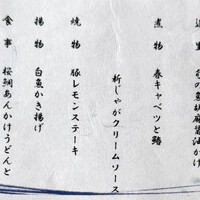 旬の魚胡麻醤油かけ
煮物　春キャベツと鶏
新じゃがクリームソース
焼物　豚レモンステーキ
揚物　白魚かき揚げ
食事　桜鯛あんかけうどんと